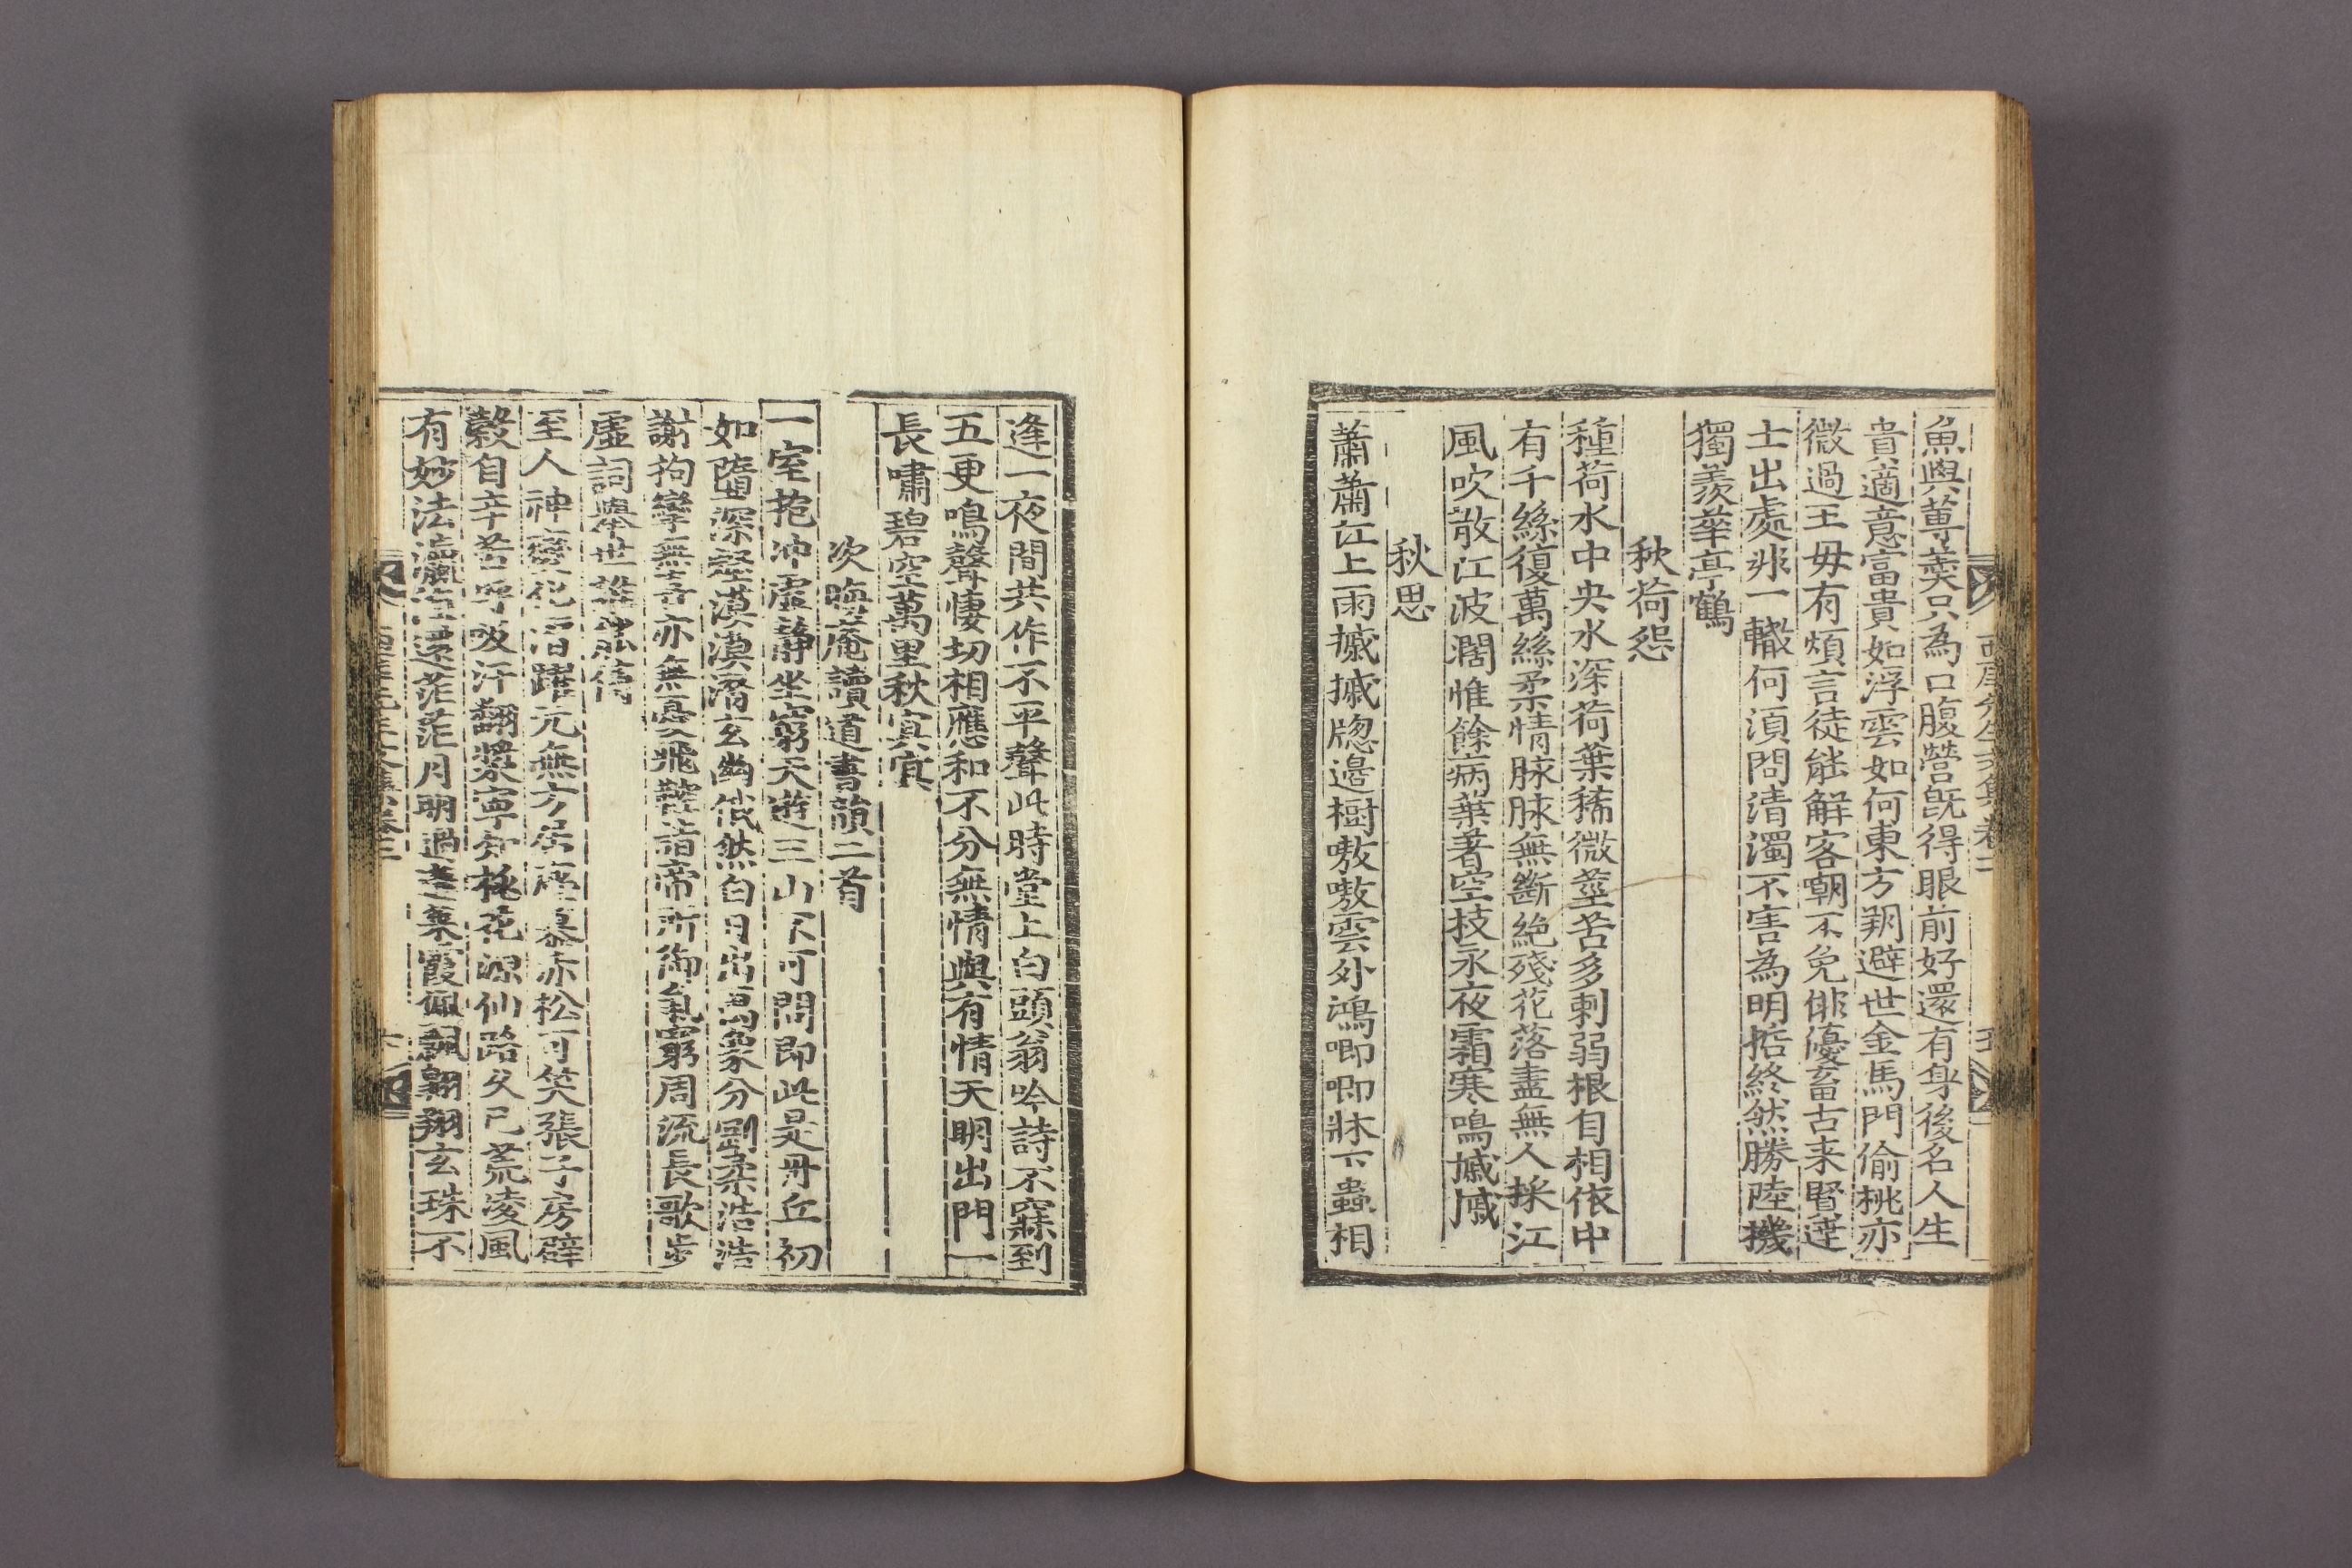 魚與蓴羹只為口腹營旣得眼前好還有身後名人生
貴適意富貴如浮雲如何東方朔避世金馬門偷桃亦
微過王母有煩言徒能解客嘲不免俳優畜古来賢達
士出處非一轍何須問清濁不害為明哲終然勝陸機
獨羨華亭鶴
秋荷怨
種荷水中央水深荷葉稀微莖苦多刺弱根自相依中
有千絲復萬絲柔情脉脉無斷絶殘花落盡無人採江
風吹散江波濶惟餘病葉著空枝永夜霜寒鳴摵摵
秋思
蕭蕭江上雨摵摵牎邊樹嗷嗷雲外鴻唧唧牀下蟲相
逢一夜間共作不平聲此時堂上白頭翁吟詩不寐到
五更鳴聲悽切相應和不分無情與有情天明出門一
長嘯碧空萬里秋寘寘
次晦庵讀道書韻二首
一室抱冲虛靜坐窮天遊三山不可問即此是丹丘初
如墮深壑漠漠潛玄幽俄然白日出萬象分剛柔浩浩
謝拘攣無喜亦無憂飛鞚詣帝所御氣窮周流長歌步
虛詞舉世誰
至人神變化活躍元無方居塵慕赤松可笑張子房辟
穀自辛苦呼吸汗翻漿寧知桃花源仙路久已荒凌風
有妙法瀛海還茫茫月明過蓬萊霞佩飄翺翔玄珠不